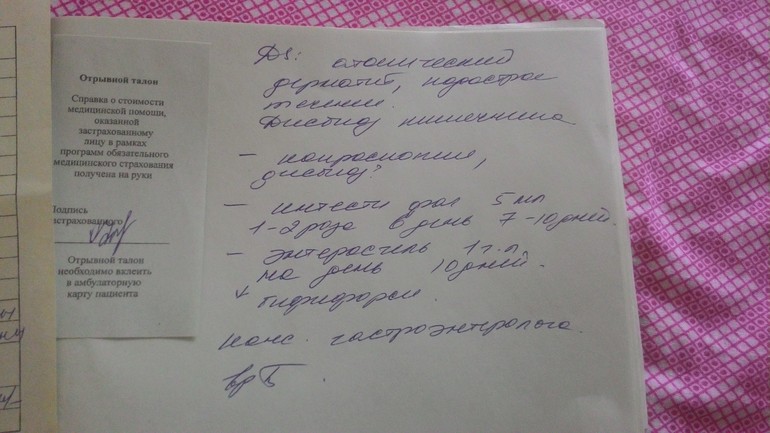 Отрывной талон
Справка о стоимости
медицинской помощи,
оказанной
застрахованному
лицу в рамках
программ обязательного
медицинского страхования
получена на руки
Подпись
застрахованного
Отрывной талон
необходимо вклеить
в амбулаторную
карту пациента
Ds: атопический
дерматит,
течение.
Дисбиоз кишечника
- копроскопия,
дисбиоз?
- интести фаг 5 мл
1-2 раза в день 7-10 дней.
- энтеросгель 1 ч.л
на день 10 дней.
+ бифиформ.
Конс. гастроэнтролога.